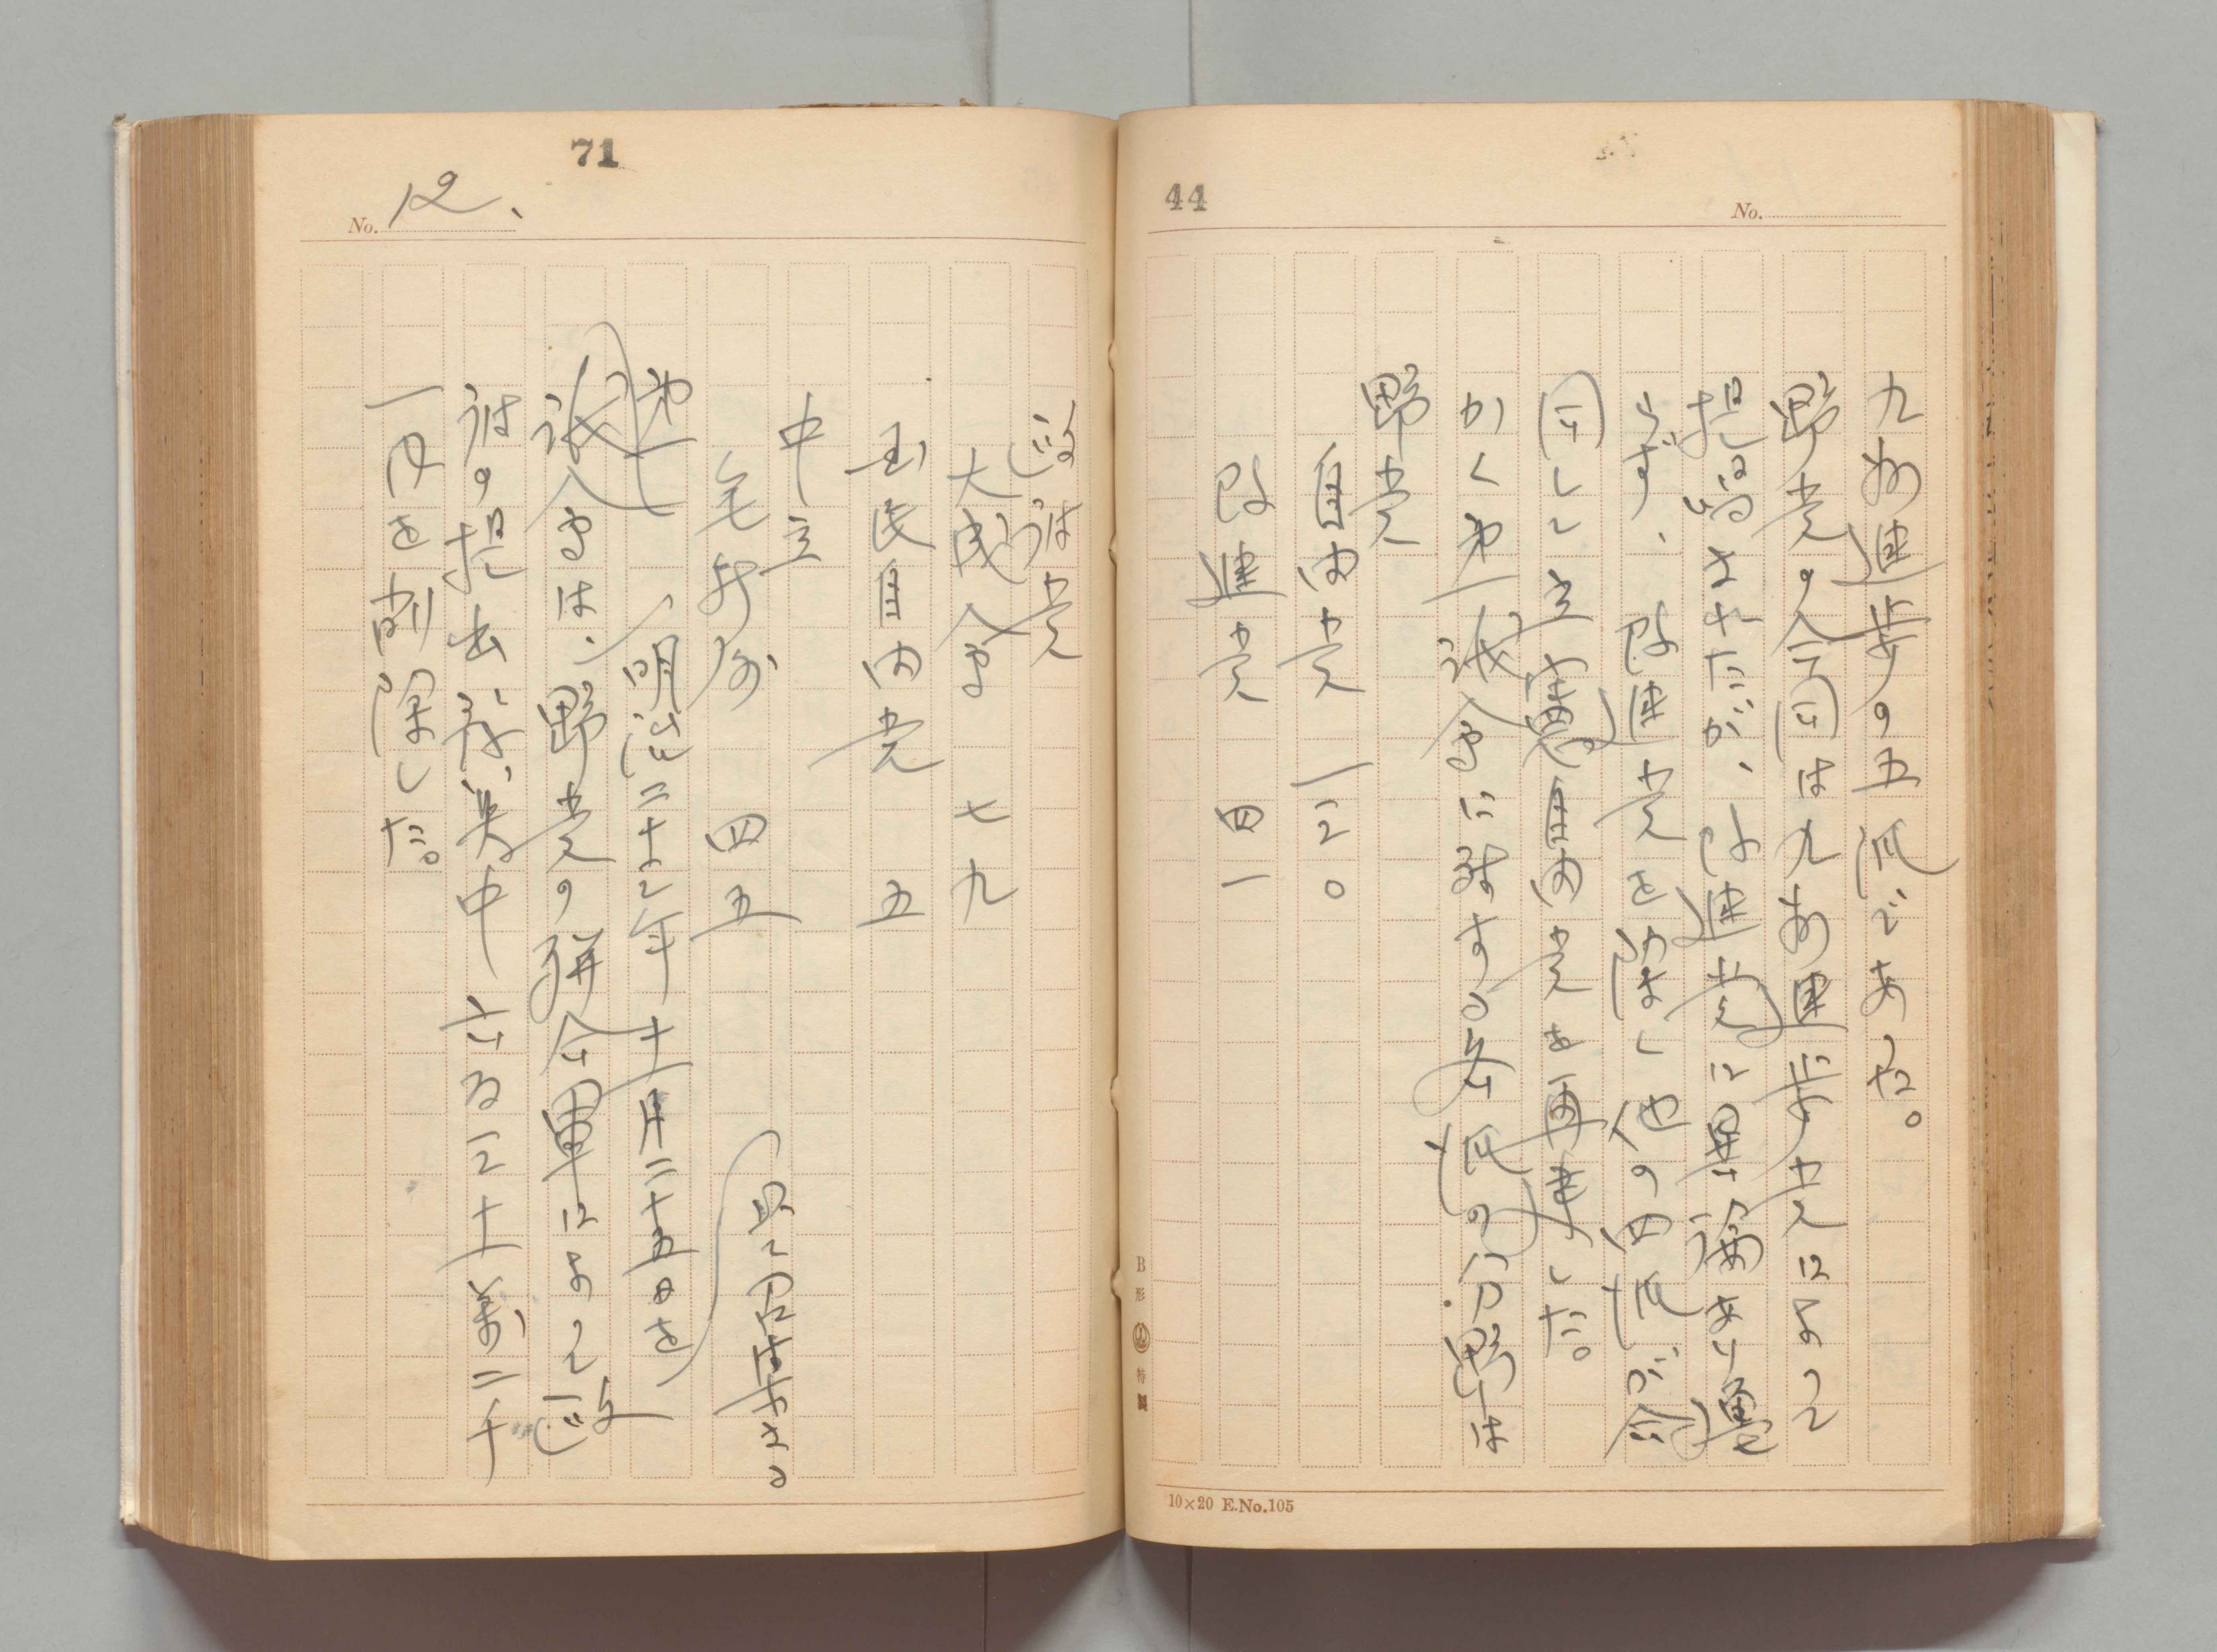 44
No.
九州進歩の五派であった。
野党の合同は九州進歩党によって
提唱されたが、改進党に異論あり、遭
らず、改進党を除く他の四派が合
同して立憲自由党を再建した。
かくて第一議会に対する各派の分野は
野党
自由党　一三〇
改進党　四一
10×20 E.No.105
B形 特製
71
No. 12、
政府党
大成会　七九
国民自由党　五
中立
無所属　四五
第一
明治二十三年十一月二十五日を
議会では、野党の聯合軍によって政
府の提出予算中六百三十万二千
円を削除した。